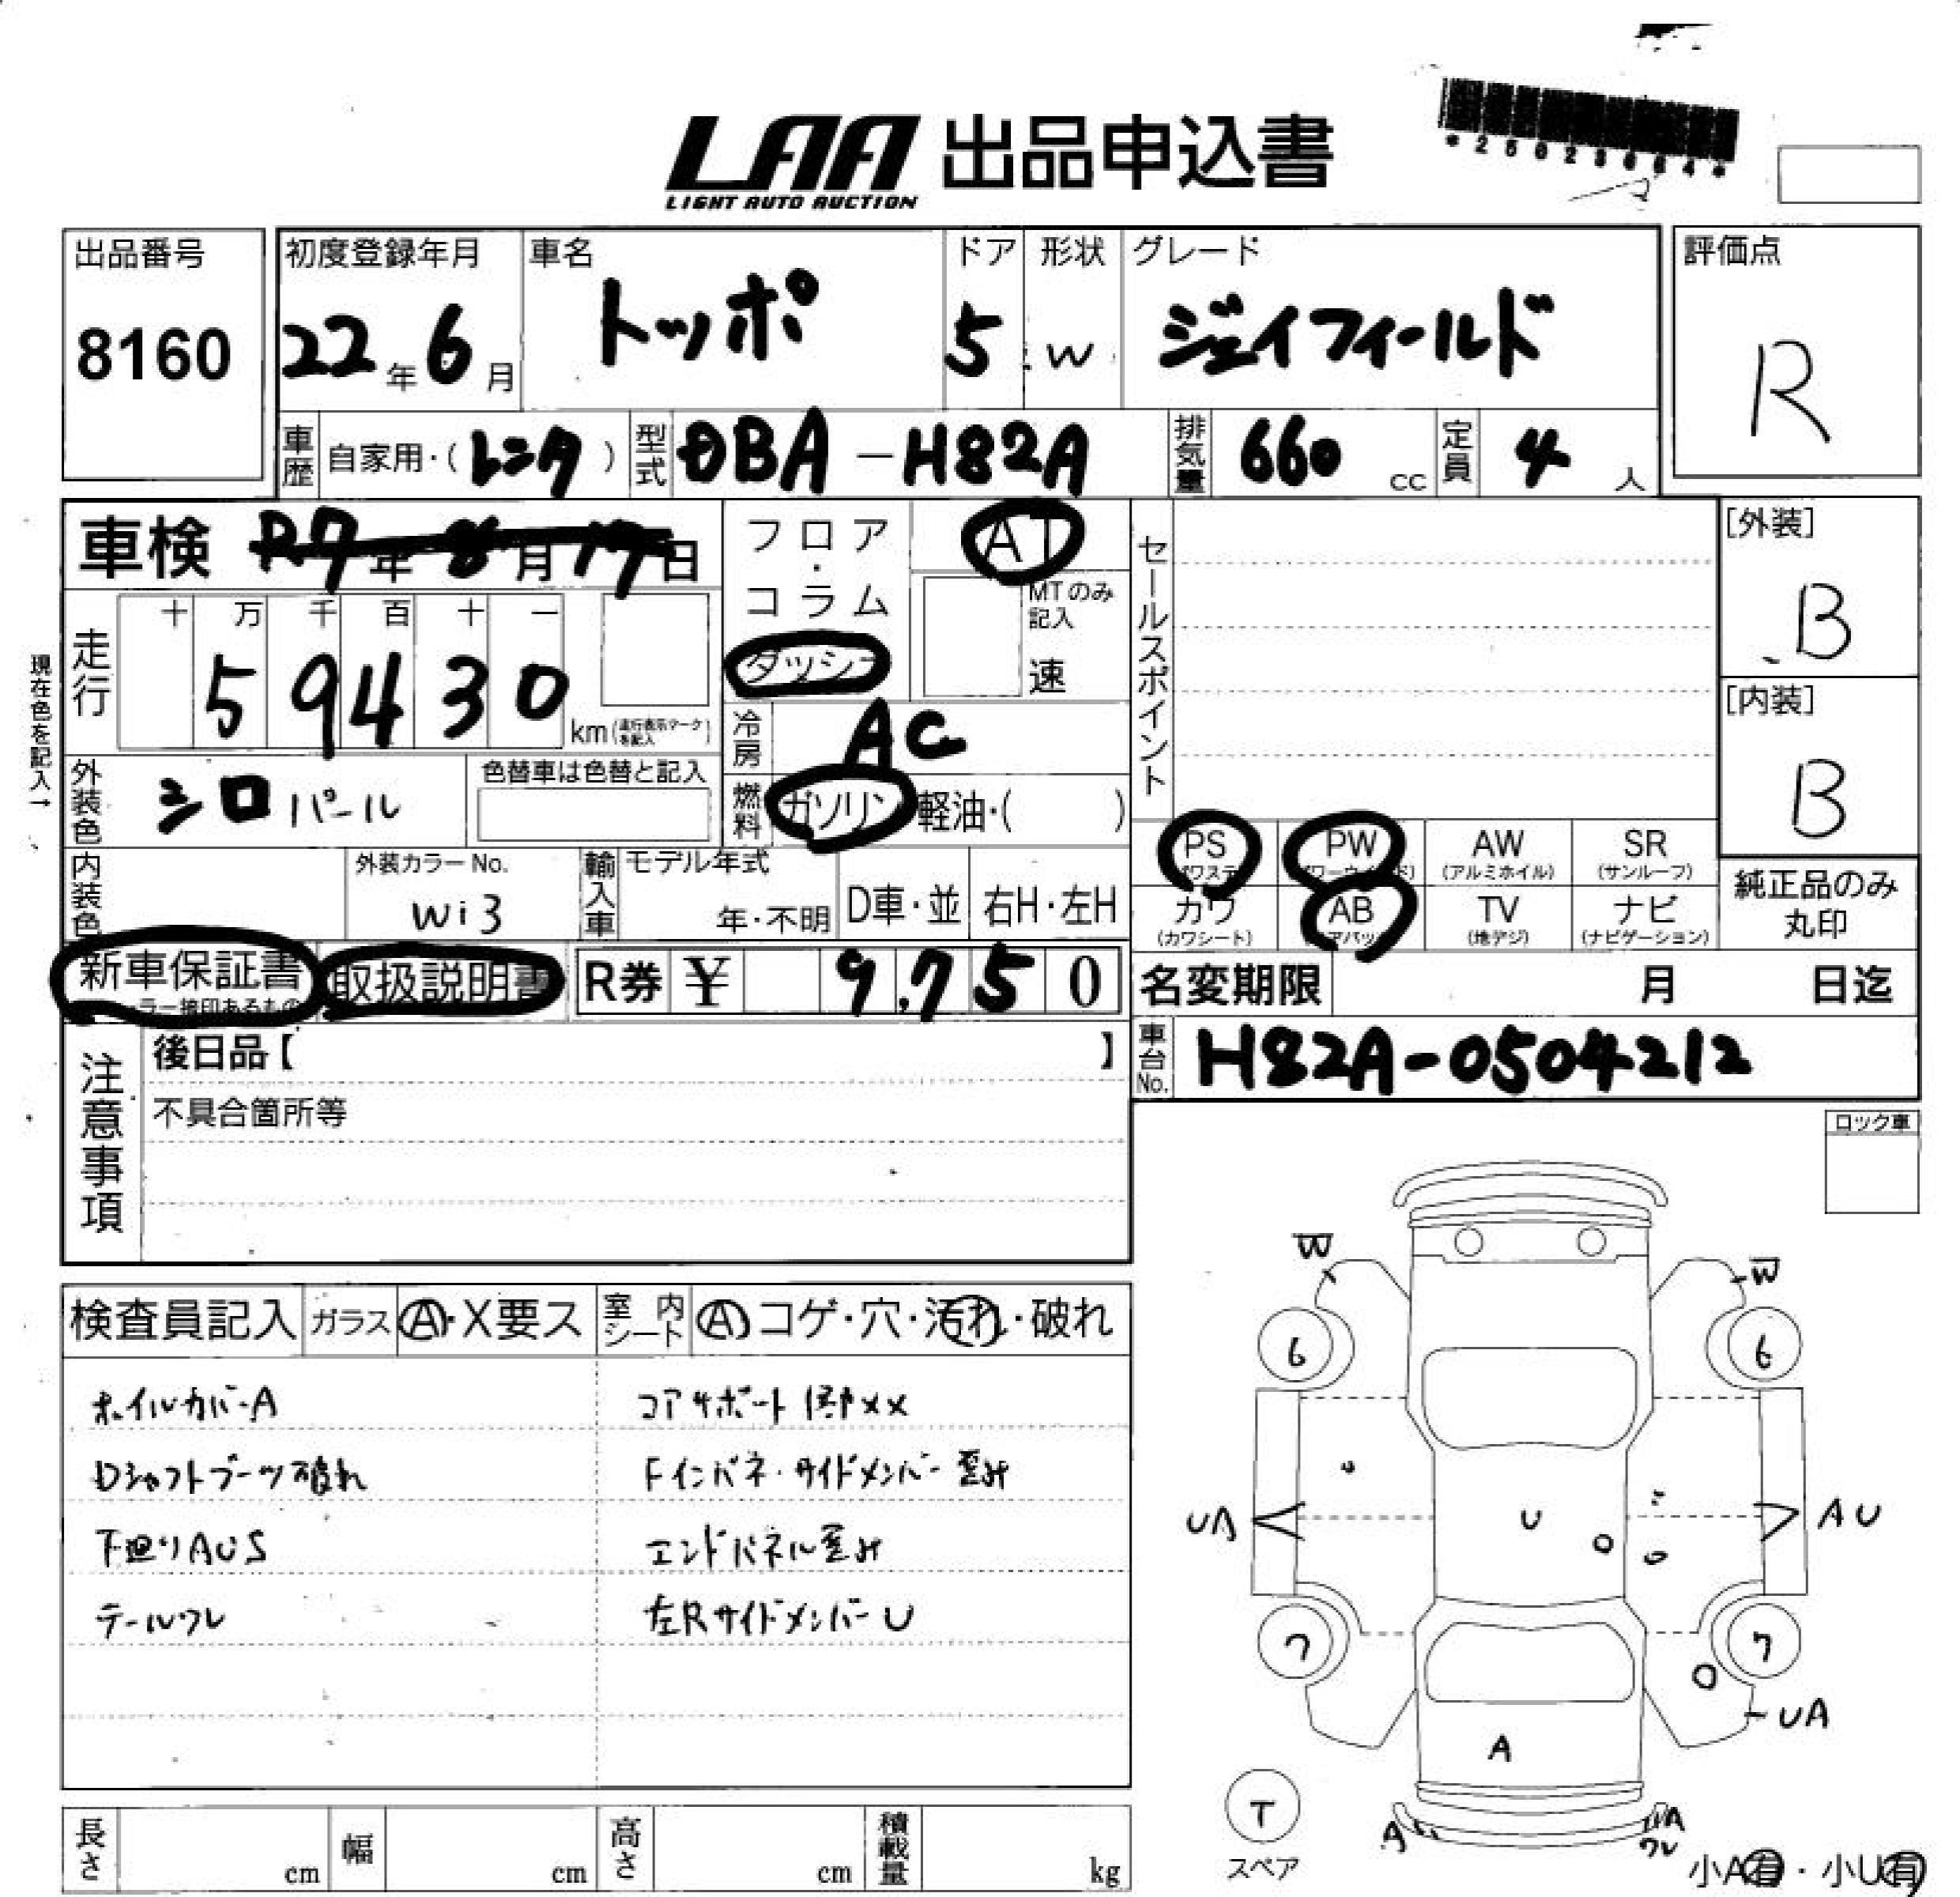 LAA 出品申込書
LIGHT AUTO AUCTION
出品番号 初度登録年月 車名 ドア 形状 グレード 評価点
8160 22年6月 トッポ 5 W ジェイフィールド R
車歴 自家用・(レンタ) 型式 DBA-H82A 排気量 660 cc 定員 4 人
車検 R7年8月17日 フロア・コラム AT セールスポイント [外装]
ダッシュ MTのみ記入 速 B
走行 十 万 千 百 十 一
5 9 4 3 0 km (走行表示マークを記入)
現在色を記入→
冷房 AC [内装]
外装色 シロパール 色替車は色替と記入 燃料 ガソリン・軽油・( ) B
PS PW AW (アルミホイル) SR (サンルーフ)
内装色 外装カラーNo. 輸入車 モデル年式 純正品のみ丸印
W13 年・不明 D車・並 右H・左H カワ (カワシート) AB TV (地デジ) ナビ (ナビゲーション)
新車保証書 取扱説明書 R券 ¥ 9,750 名変期限 月 日迄
車台No. H82A-0504212
注意事項 後日品【 】
不具合箇所等
ロック車
検査員記入 ガラス A・X要ス 室内シート A コゲ・穴・汚れ・破れ
ホイルカバーA コアサポート 押××
Dシャフトブーツ破れ Fインパネ・サイドメンバー歪み
下廻りAUS エンドパネル歪み
テールワレ 左RサイドメンバーU
W W
6 6
UA U AU
7 7
UA
A
T
スペア
A A ワレ
小A有・小U有
長さ cm 幅 cm 高さ cm 積載量 kg